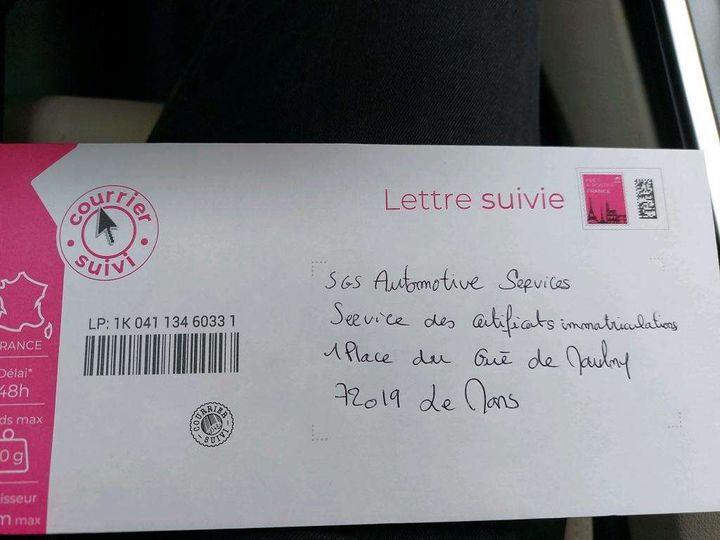 courrier
suivi
Lettre suivie
PRÊT
À POSTER
FRANCE
SGS Automotive Services
Service des certificats immatriculations
1 Place du Gué de Maulny
72019 Le Mans
LP: 1K 041 134 6033 1
COURRIER
SUIVI
RANCE
Délai*
48h
ds max
0 g
isseur
m max